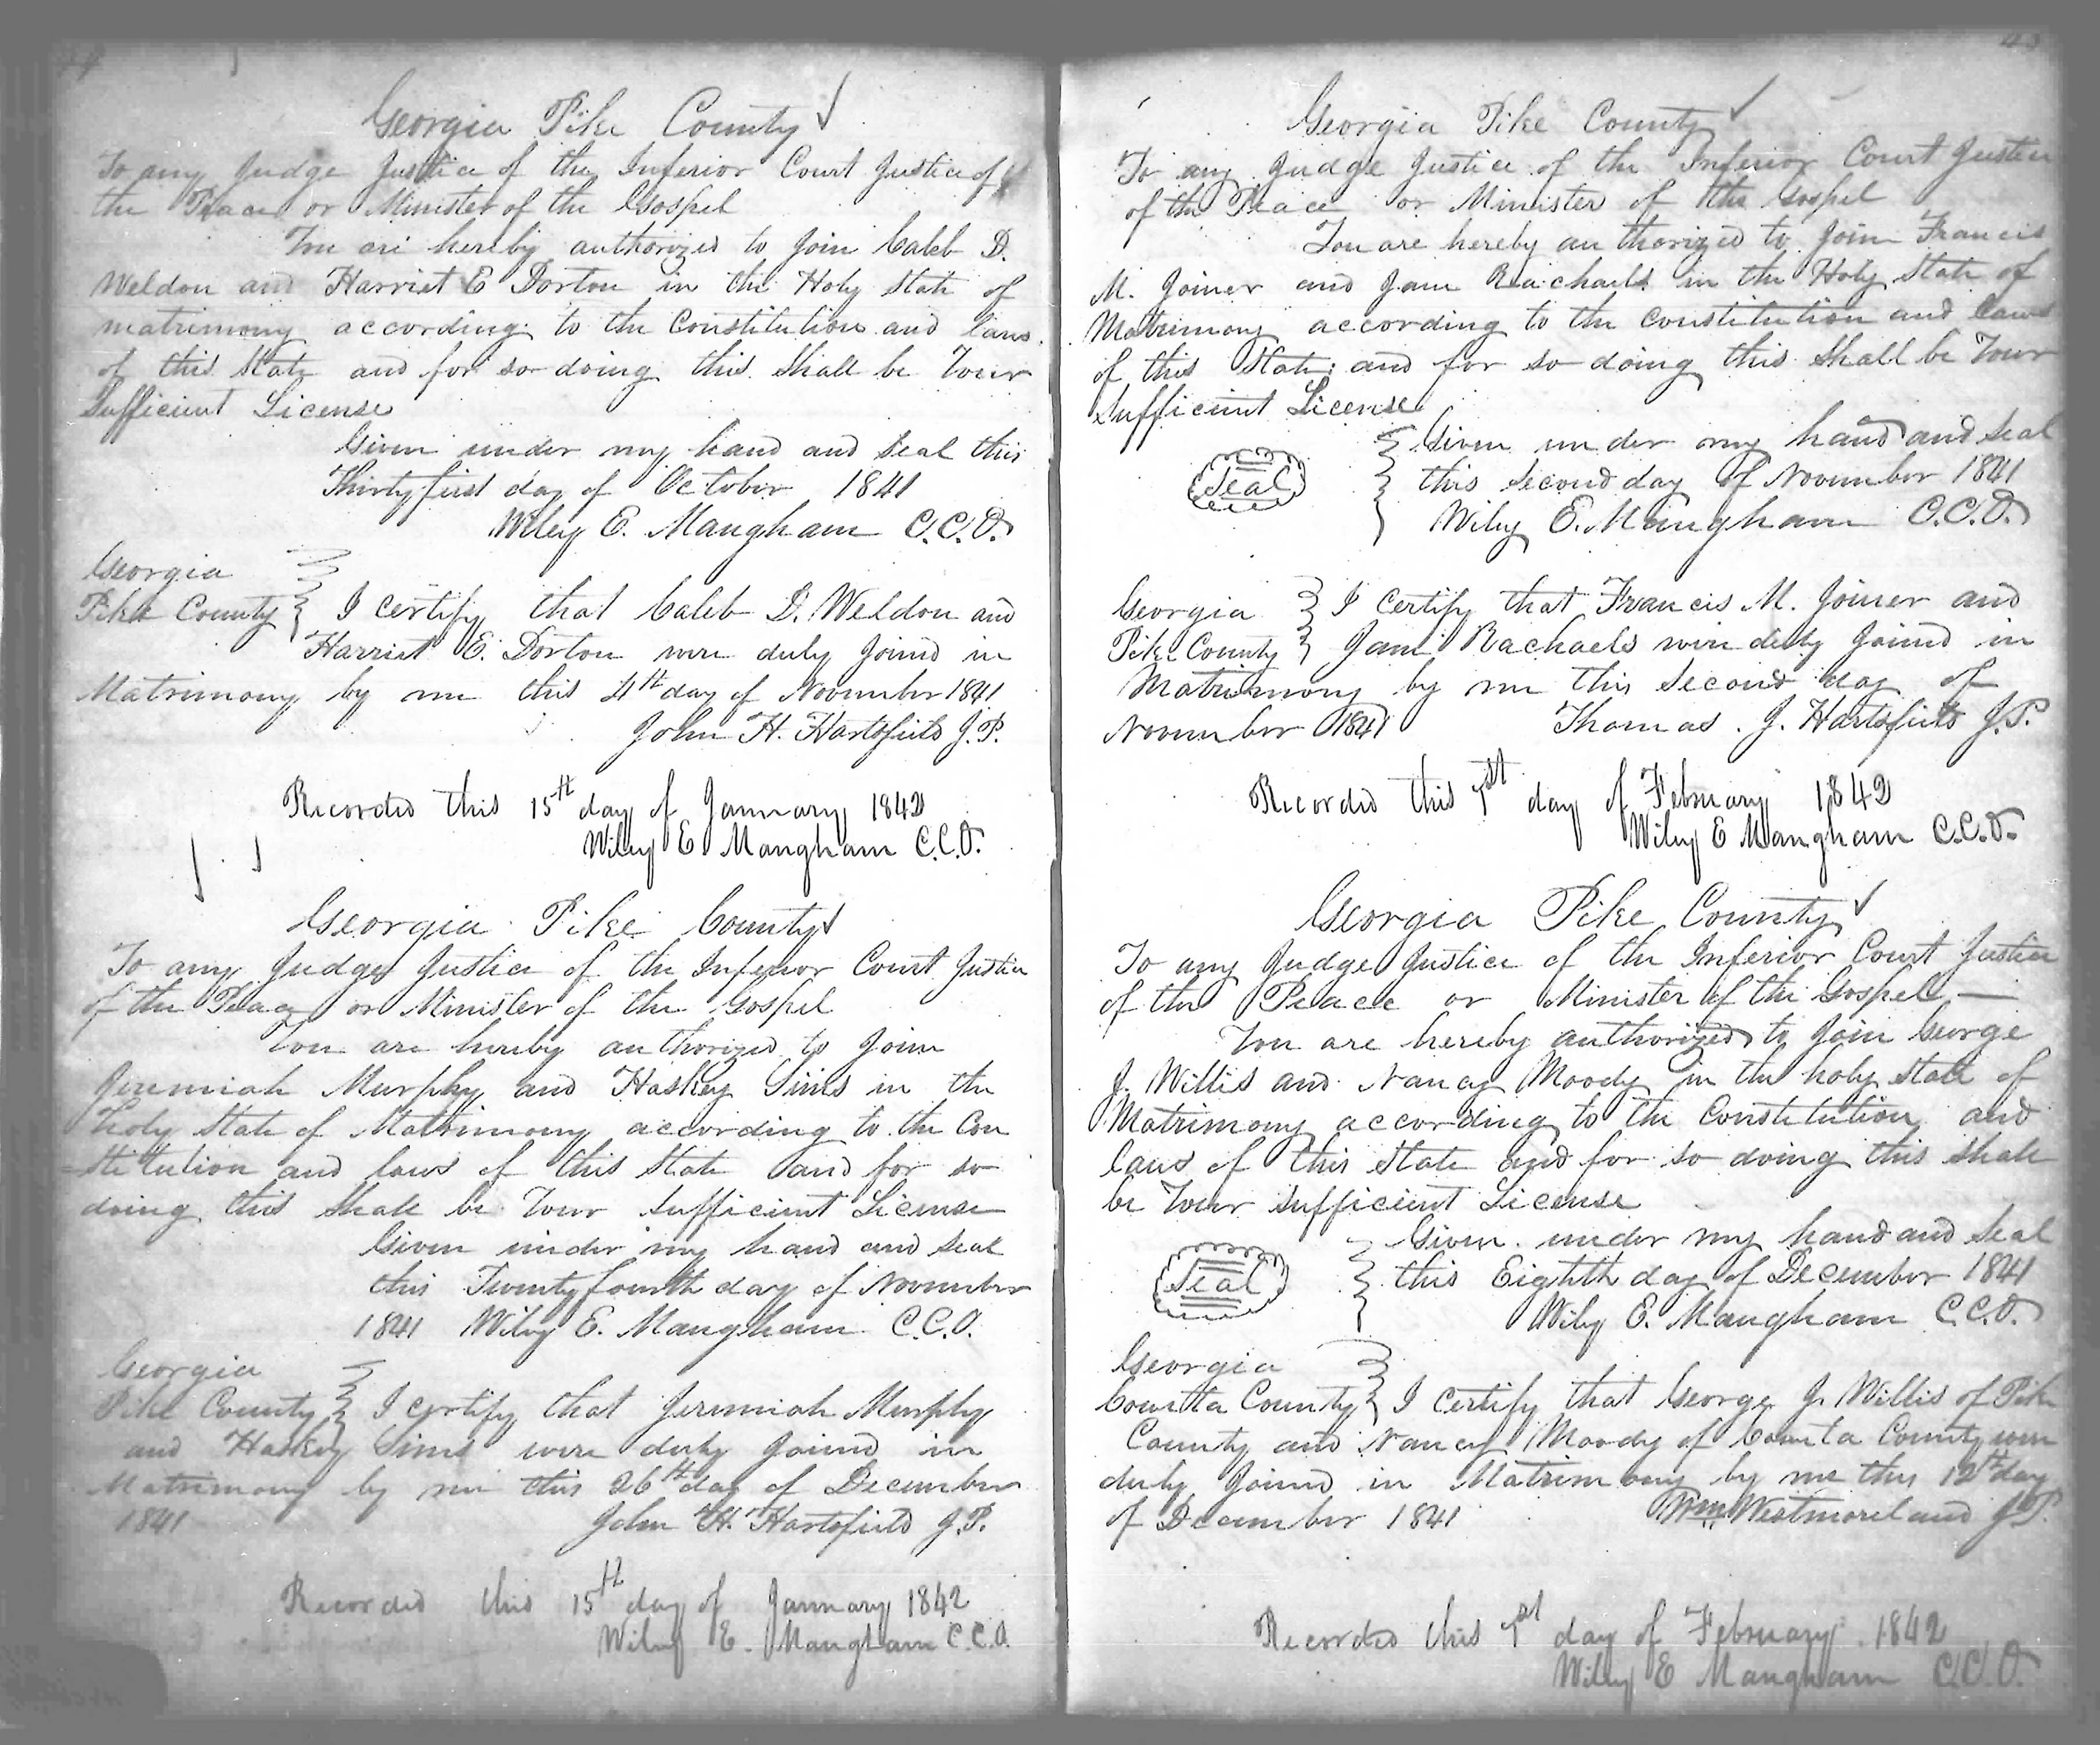 Georgia Pike County
To any Judge Justice of the Inferior Court Justice of
the Peace or Minister of the Gospel
You are hereby authorized to Join Caleb D.
Weldon and Harriet E Dorton in the Holy State of
matrimony according to the Constitution and laws
of this State and for so doing this Shall be Your
Sufficient License
Given under my hand and Seal this
Thirty first day of October 1841
Wiley E. Mangham C.C.O.
Georgia
Pike County I certify that Caleb D. Weldon and
Harriet E. Dorton were duly Joined in
Matrimony by me this 4th day of November 1841
John H. Hartsfield J.P.
Recorded this 15th day of January 1842
Wiley E Mangham C.C.O.
Georgia Pike County
To any Judge Justice of the Inferior Court Justice
of the Peace or Minister of the Gospel
You are hereby authorized to Join
Jeremiah Murphy and Haskey Sims in the
Holy State of Matrimony according to the Con
=stitution and laws of this State and for so
doing this Shall be Your Sufficient License
Given under my hand and Seal
this Twenty fourth day of November
1841 Wiley E. Mangham C.C.O.
Georgia
Pike County I certify that Jeremiah Murphy
and Haskey Sims were duly Joined in
Matrimony by me this 26th day of December
1841 John H. Hartsfield J.P.
Recorded this 15th day of January 1842
Wiley E. Mangham C.C.O.
Georgia Pike County
To any Judge Justice of the Inferior Court Justice
of the Peace or Minister of the Gospel
You are hereby authorized to Join Francis
M. Joiner and Jane Rachaels in the Holy State of
Matrimony according to the Constitution and Laws
of this State and for so doing this Shall be Your
Sufficient License
Seal Given under my hand and Seal
this Second day of November 1841
Wiley E. Mangham C.C.O.
Georgia I Certify that Francis M. Joiner and
Pike County Jane Rachaels were duly Joined in
Matrimony by me this Second day of
November 1841 Thomas J. Hartsfield J.P.
Recorded this 1st day of February 1842
Wiley E Mangham C.C.O.
Georgia Pike County
To any Judge Justice of the Inferior Court Justice
of the Peace or Minister of the Gospel —
You are hereby authorized to Join George
J. Willis and Nancy Moody in the holy State of
Matrimony according to the Constitution and
laws of this State and for so doing this Shall
be Your Sufficient License
Seal Given under my hand and Seal
this Eighth day of December 1841
Wiley E. Mangham C.C.O.
Georgia
Cowetta County I Certify that George J. Willis of Pike
County and Nancy Moody of Coweta County were
duly Joined in Matrimony by me this 12th day
of December 1841 Wm Westmoreland J.P.
Recorded this 1st day of February 1842
Wiley E Mangham C.C.O.